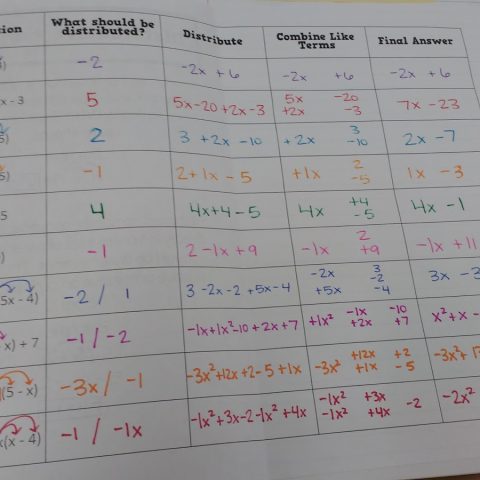 ion What should be distributed? Distribute Combine Like Terms Final Answer
-2 -2x +6 -2x +6 -2x +6
x - 3 5 5x-20 +2x-3 5x -20 +2x -3 7x -23
5) 2 3 +2x -10 +2x 3 -10 2x -7
5) -1 2+1x-5 +1x 2 -5 1x -3
5 4 4x+4-5 4x +4 -5 4x -1
) -1 2-1x+9 -1x 2 +9 -1x +11
5x - 4) -2 / 1 3 -2x-2 +5x-4 -2x 3 +5x -2 -4 3x -3
x) + 7 -1 / -2 -1x+1x²-10+2x+7 +1x² -1x -10 +2x +7 x²+x -
(5 - x) -3x / -1 -3x²+12x+2-5+1x -3x² +12x +2 +1x -5 -3x²+
(x - 4) -1 / -1x -1x²+3x-2-1x²+4x -1x² +3x -2 -1x² +4x -2x²